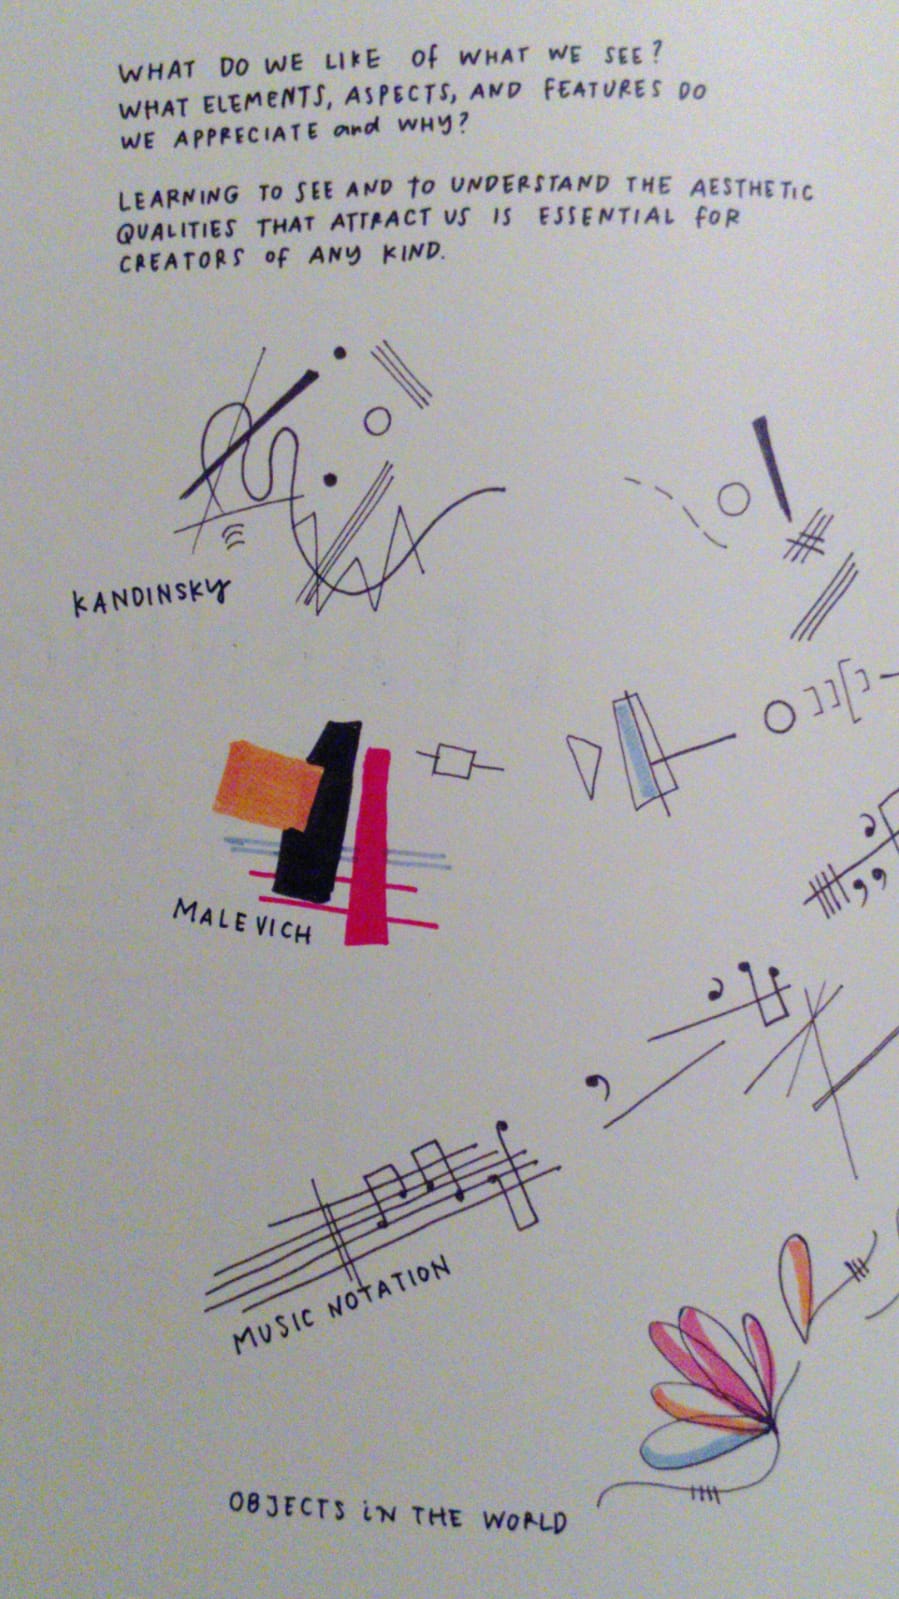 WHAT DO WE LIKE of WHAT WE SEE?
WHAT ELEMENTS, ASPECTS, AND FEATURES DO
WE APPRECIATE and WHY?
LEARNING TO SEE AND to UNDERSTAND THE AESTHETIC
QUALITIES THAT ATTRACT US IS ESSENTIAL foR
CREATORS of ANY KIND.
KANDINSKY
MALEVICH
MUSIC NOTATION
OBJECTS iN THE WORLD